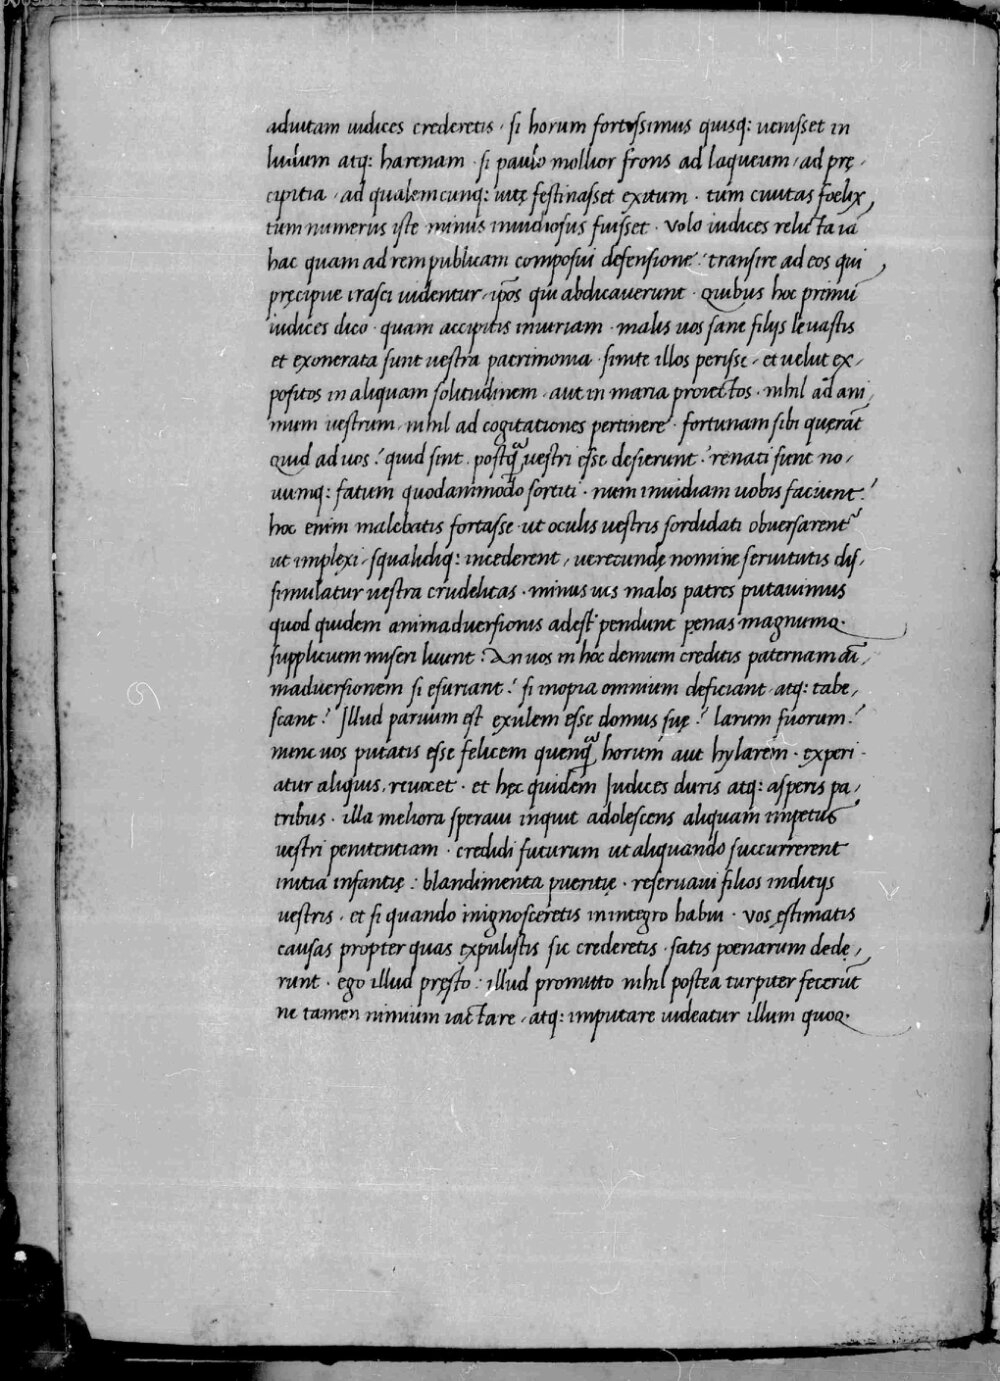 aduitam iudices crederetis · si horum fortissimus quisq: uenisset in
ludum atq: harenam · si paulo mollior frons ad laqueum / ad prę-
cipitia / ad qualemcunq: uitę festinasset exitum · tum ciuitas foelix,
tum numerus iste minus inuidiosus fuisset · Volo iudices relicta iã
hac quam ad rem publicam composui defensione: transire ad eos qui
pręcipue irasci uidentur, ipõs qui abdicauerunt · Quibus hoc primũ
iudices dico · quam accipitis iniuriam · malis uos sane filijs leuastis
et exonerata sunt uestra patrimonia · sinite illos perisse / et uelut ex-
positos in aliquam solitudinem / aut in maria proiectos · nihil ad ani-
mum uestrum / nihil ad cogitationes pertinere · fortunam sibi quęrãt
Quid ad uos? quid sint, postq̃ uestri esse desierunt? renati sunt no-
uumq: fatum quodammodo sortiti · num inuidiam uobis faciunt?
hoc enim malebatis fortasse ut oculis uestris sordidati obuersarent᷑
ut implexi / squalidiq: incederent / uerecundę nomine seruitutis dis-
simulatur uestra crudelitas · minus uis malos patres putauimus
quod quidem animaduersionis adest pendunt pęnas magnumq·
supplicium miseri luunt: An uos in hoc demum creditis paternam ãi-
maduersionem si esuriant? si inopia omnium deficiant atq: tabe-
scant? Illud paruum est exulem esse domus suę? larum suorum?
nunc uos putatis esse felicem quenq̃ horum aut hylarem · experi-
atur aliquis, reuocet · et hęc quidem Iudices duris atq: asperis pa-
tribus · illa meliora speraui inquit adolescens aliquam impetus
uestri penitentiam · credidi futurum ut aliquando succurrerent
initia infantię: blandimenta pueritię · reseruaui filios inditijs
uestris · et si quando inignosceretis in integro habui · Vos ęstimatis
causas propter quas expulistis sic crederetis · satis poenarum dedę-
runt · ego illud pręsto: illud promitto nihil postea turpiter fecerũt
ne tamen nimium iactare / atq: imputare uideatur illum quoq·